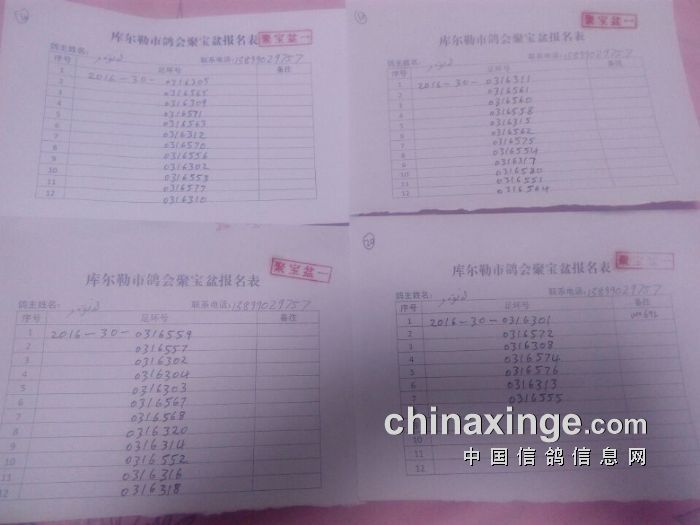 库尔勒市鸽会聚宝盆报名表 聚宝盆一
鸽主姓名: 联系电话:15899029757
序号 足环号 备注
1 2016-30-0316305
2 0316565
3 0316309
4 0316571
5 0316563
6 0316312
7 0316570
8 0316556
9 0316302
10 0316553
11 0316577
12 0316310
19
库尔勒市鸽会聚宝盆报名表 聚宝盆一
鸽主姓名: 联系电话:15899029757
序号 足环号 备注
1 2016-30-0316311
2 0316561
3 0316560
4 0316558
5 0316315
6 0316562
7 0316575
8 0316554
9 0316317
10 0316580
11 0316551
12 0316564
库尔勒市鸽会聚宝盆报名表 聚宝盆一
鸽主姓名: 联系电话:15899029757
序号 足环号 备注
1 2016-30-0316559
2 0316557
3 0316302
4 0316304
5 0316303
6 0316567
7 0316568
8 0316320
9 0316314
10 0316552
11 0316316
12 0316318
20
库尔勒市鸽会聚宝盆报名表 聚宝盆一
鸽主姓名: 联系电话:15899029757
序号 足环号 备注
1 2016-30-0316301
2 0316572
3 0316308
4 0316574
5 0316576
6 0316313
7 0316555
12
chinaxinge.com
中国信鸽信息网